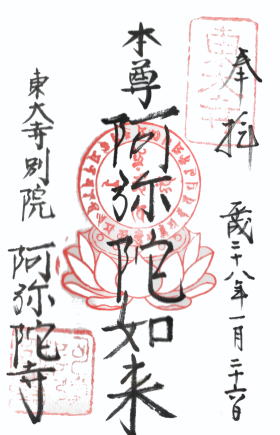 奉拝
平成二十八年一月二十六日
本尊
阿弥陀如来
東大寺別院
阿弥陀寺